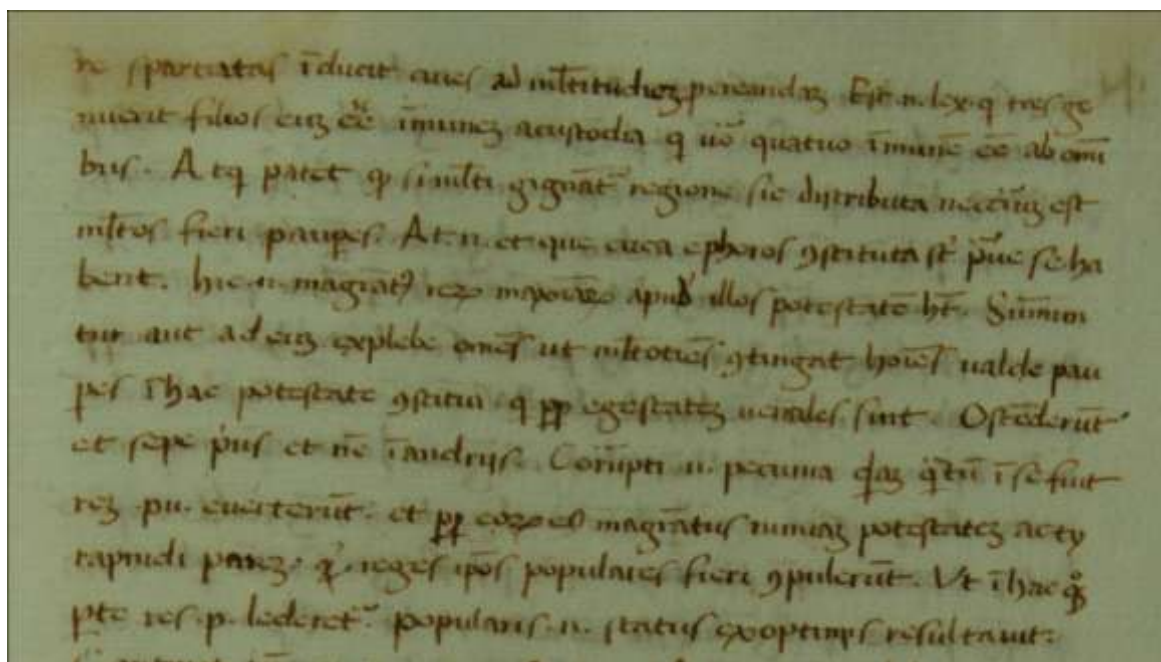 re spartiatas īducit ciues ad ml̄titudinez procreandaz. Est .n. lex. q tres ge
nuerit filios euz eē īmunez a custodia q uō quatuor īmunē eē ab omī
bus. Atq patet qꝫ si ml̄ti gignāt regione sic distributa neccīuz est
ml̄tos fieri paupes. At .n. et que circa ephoros ꝯstituta st̄ praue se ha
bent. hic .n. magrāt9 reꝝ maioꝝ apud illos potestatē ht̄. Sūmun
tur aut ad euz ex plebe omēs ut ml̄totiēs ꝯtingat hoīes ualde pau
pes ī hac potestate ꝯstitui q pp egestatez uenales sint. Ostēderūt
et sepe pius et nē ī andrijs. Corrupti .n. pecunia qdaz q̄tū ī se fuit
rez .pu. euerterūt. et pp eoꝝ magrātus nimiaz potestatez ac ty
rapnidi parez. reges ipōs populares fieri ꝯpulerūt. Ut ī hac qꝫ
pte res .p. lederet. popularis .n. status ex optimis resultauit.